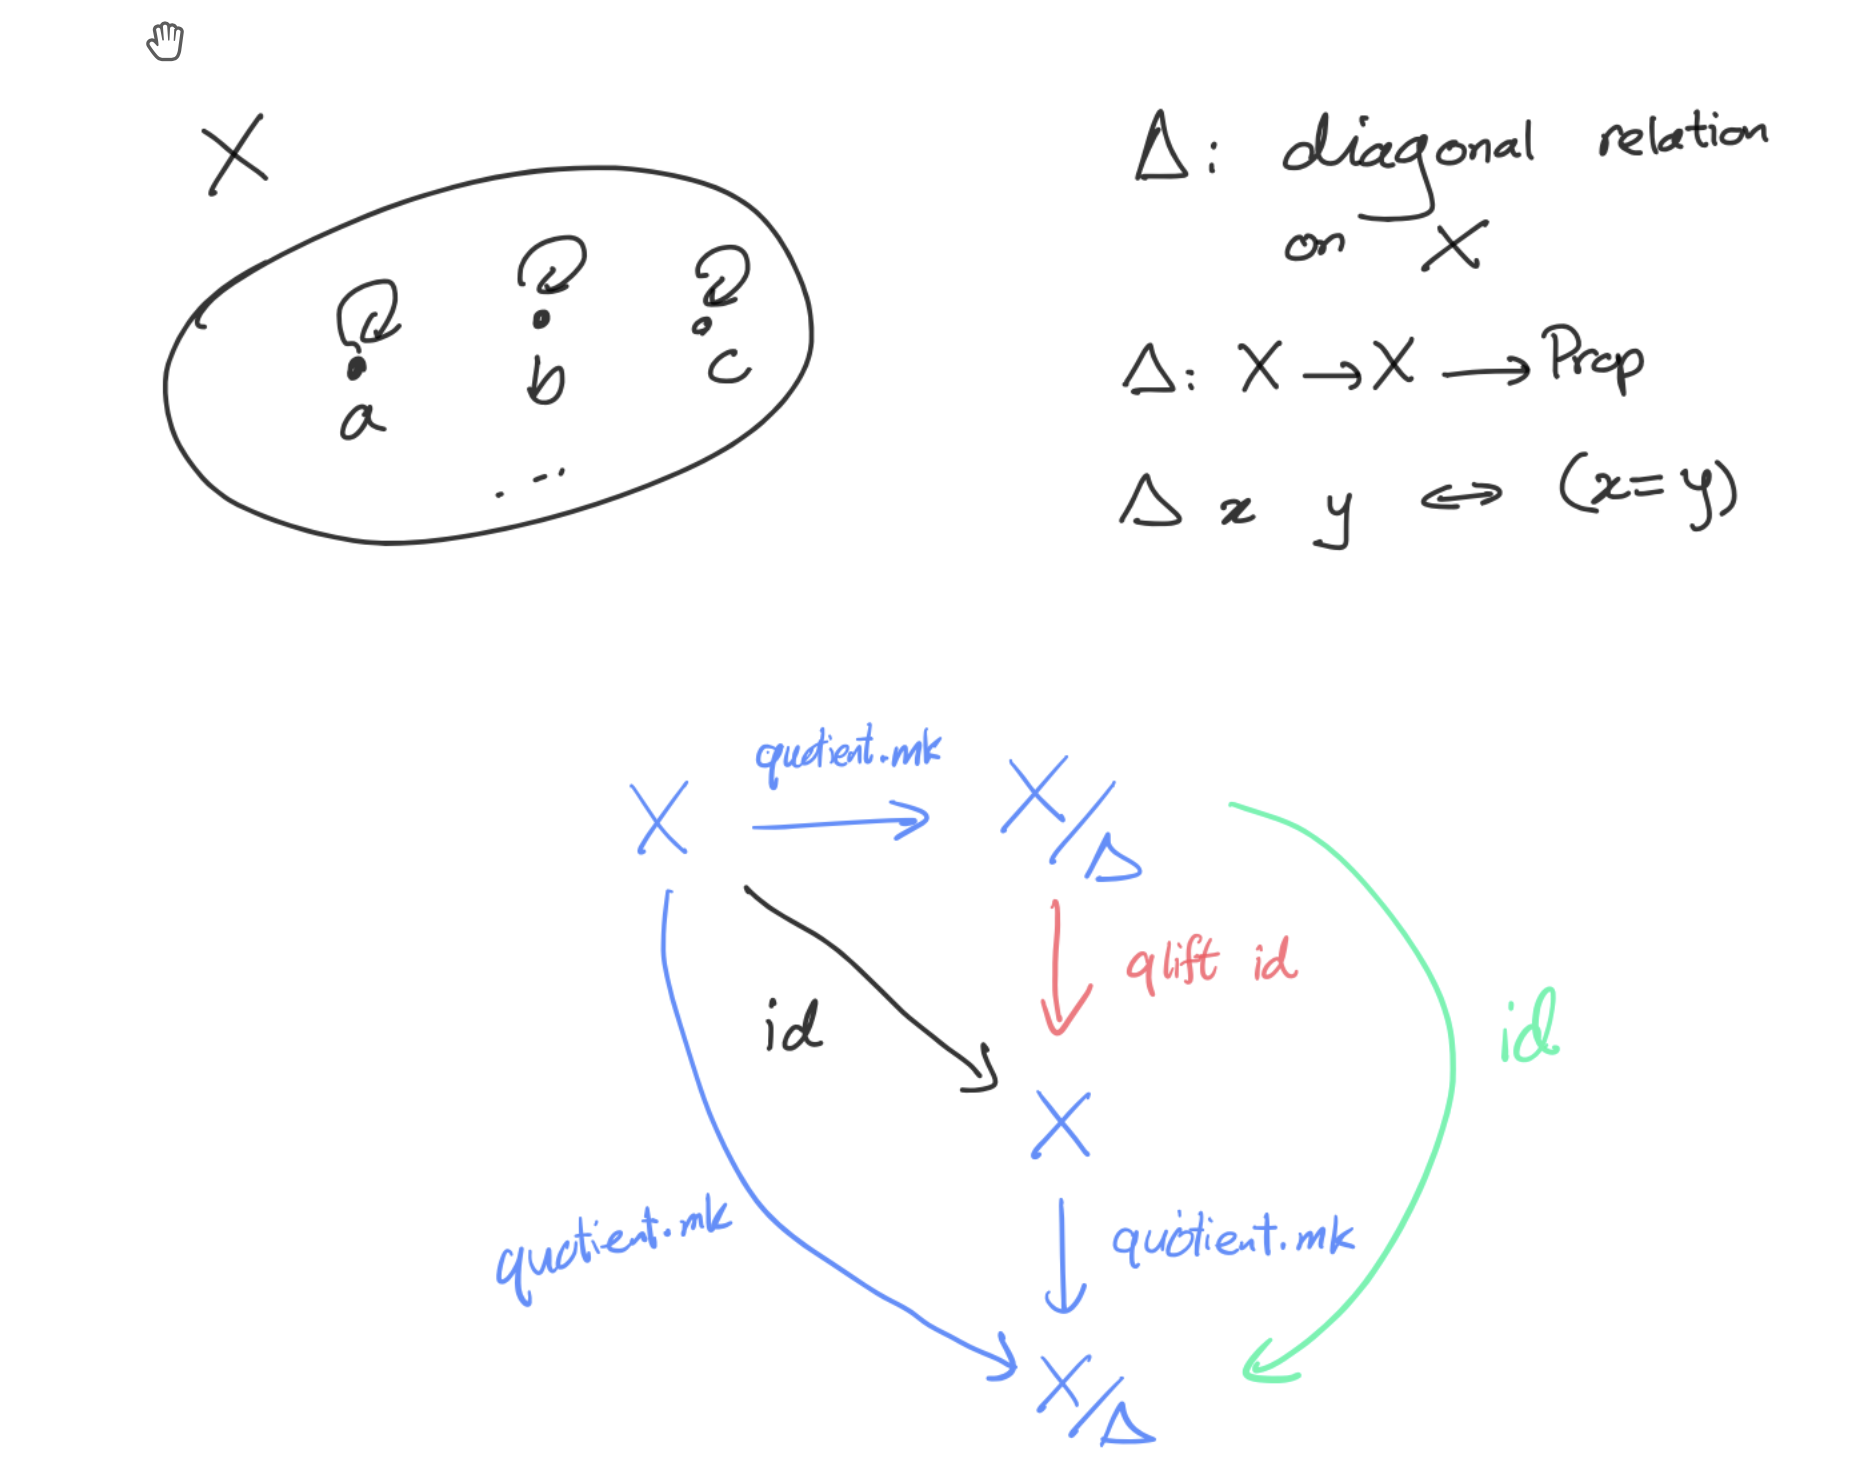 X
a
b
c
...
Δ: diagonal relation
on X
Δ: X → X → Prop
Δ x y ↔ (x = y)
quotient.mk
X
X/Δ
qlift id
id
id
X
quotient.mk
quotient.mk
X/Δ